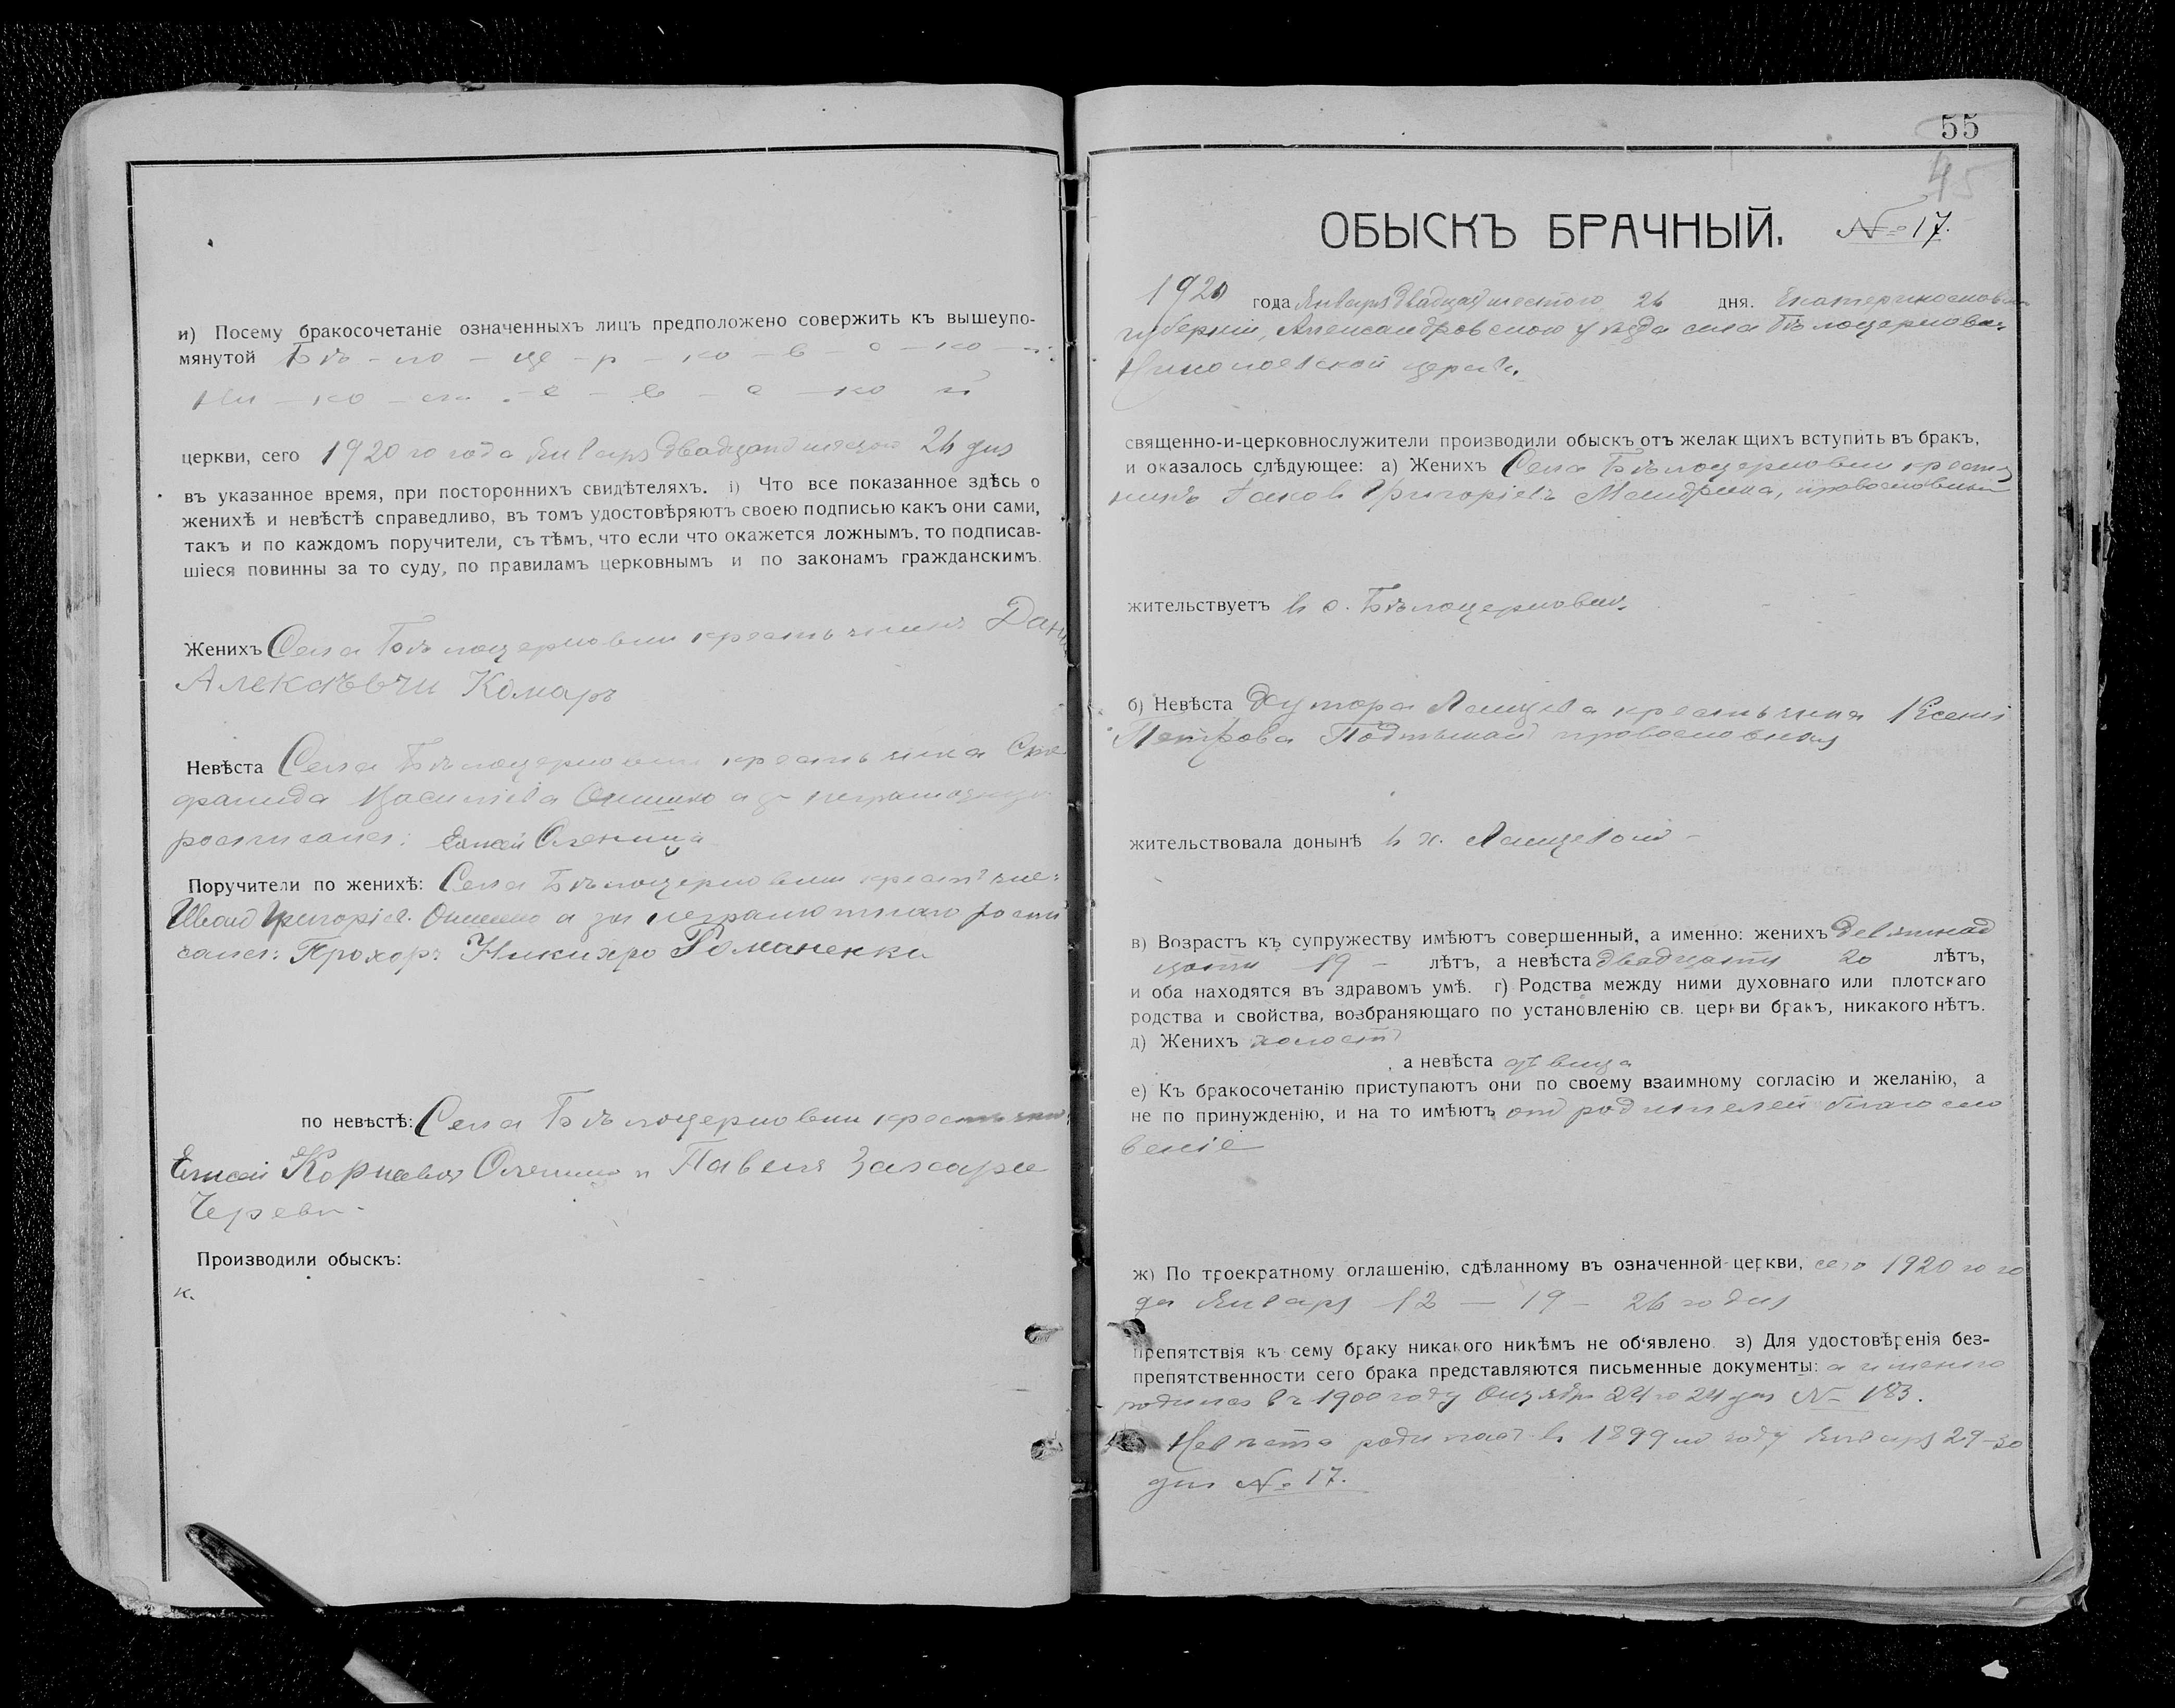 и) Посему бракосочетаніе означенныхъ лицъ предположено совержить къ вышеупо-
мянутой Бѣ - ло - це - р - ко - в - с - ко - й
Ни - ко - ла - е - в - с - ко й
церкви, сего 1920 го года Января двадцать шестого 26 дня
въ указанное время, при постороннихъ свидѣтеляхъ. і) Что все показанное здѣсь о
женихѣ и невѣстѣ справедливо, въ томъ удостовѣряютъ своею подписью какъ они сами,
такъ и по каждомъ поручители, съ тѣмъ, что если что окажется ложнымъ, то подписав-
шіеся повинны за то суду, по правиламъ церковнымъ и по законамъ гражданскимъ.
Женихъ Села Бѣлоцерковки крестьянинъ
Алексѣвчи Комаръ
Невѣста Села Бѣлоцерковки крестьянка
Василіева Онишко а за неграмотную
росписался: Елисей Оленица
Поручители по женихѣ: Села Бѣлоцерковки
Иванъ Григоріев. Онишко а за неграмотнаго роспи
сался: Прохоръ Никихро Романенко
по невѣстѣ: Села Бѣлоцерковки
Елисей Корнѣевъ и Павелъ Захаріе
Череви
Производили обыскъ:
к.
55
45
ОБЫСКЪ БРАЧНЫЙ. № 17.
1920 года Января двадцать шестого 26 дня. Екатеринославск
губерніи, Александровского уѣзда села Бѣлоцерковки
Николаевской церкви.
священно-и-церковнослужители производили обыскъ отъ желающихъ вступить въ бракъ,
и оказалось слѣдующее: а) Женихъ Села Бѣлоцерковки крестья
нинъ Іаковъ Григоріевъ Мандрика, православный
жительствуетъ въ с. Бѣлоцерковки.
б) Невѣста Хутора крестьянка Ксенія
Петрова православная
жительствовала донынѣ въ х.
в) Возрастъ къ супружеству имѣютъ совершенный, а именно: женихъ девятнад
цати 19 - лѣтъ, а невѣста двадцати 20 лѣтъ,
и оба находятся въ здравомъ умѣ. г) Родства между ними духовнаго или плотскаго
родства и свойства, возбраняющаго по установленію св. церкви бракъ, никакого нѣтъ.
д) Женихъ холостъ
, а невѣста дѣвица
е) Къ бракосочетанію приступаютъ они по своему взаимному согласію и желанію, а
не по принужденію, и на то имѣютъ отъ родителей благосло
веніе
ж) По троекратному оглашенію, сдѣланному въ означенной церкви, сего 1920 го го
да Января 12 - 19 - 26 го дня
препятствія къ сему браку никакого никѣмъ не об'явлено. з) Для удостовѣренія без-
препятственности сего брака представляются письменные документы: а именно
родился въ 1900 году Октября 24 го 24 дня № 183.
Невѣста родилась въ 1899 м году Января 29-го
дня № 17.